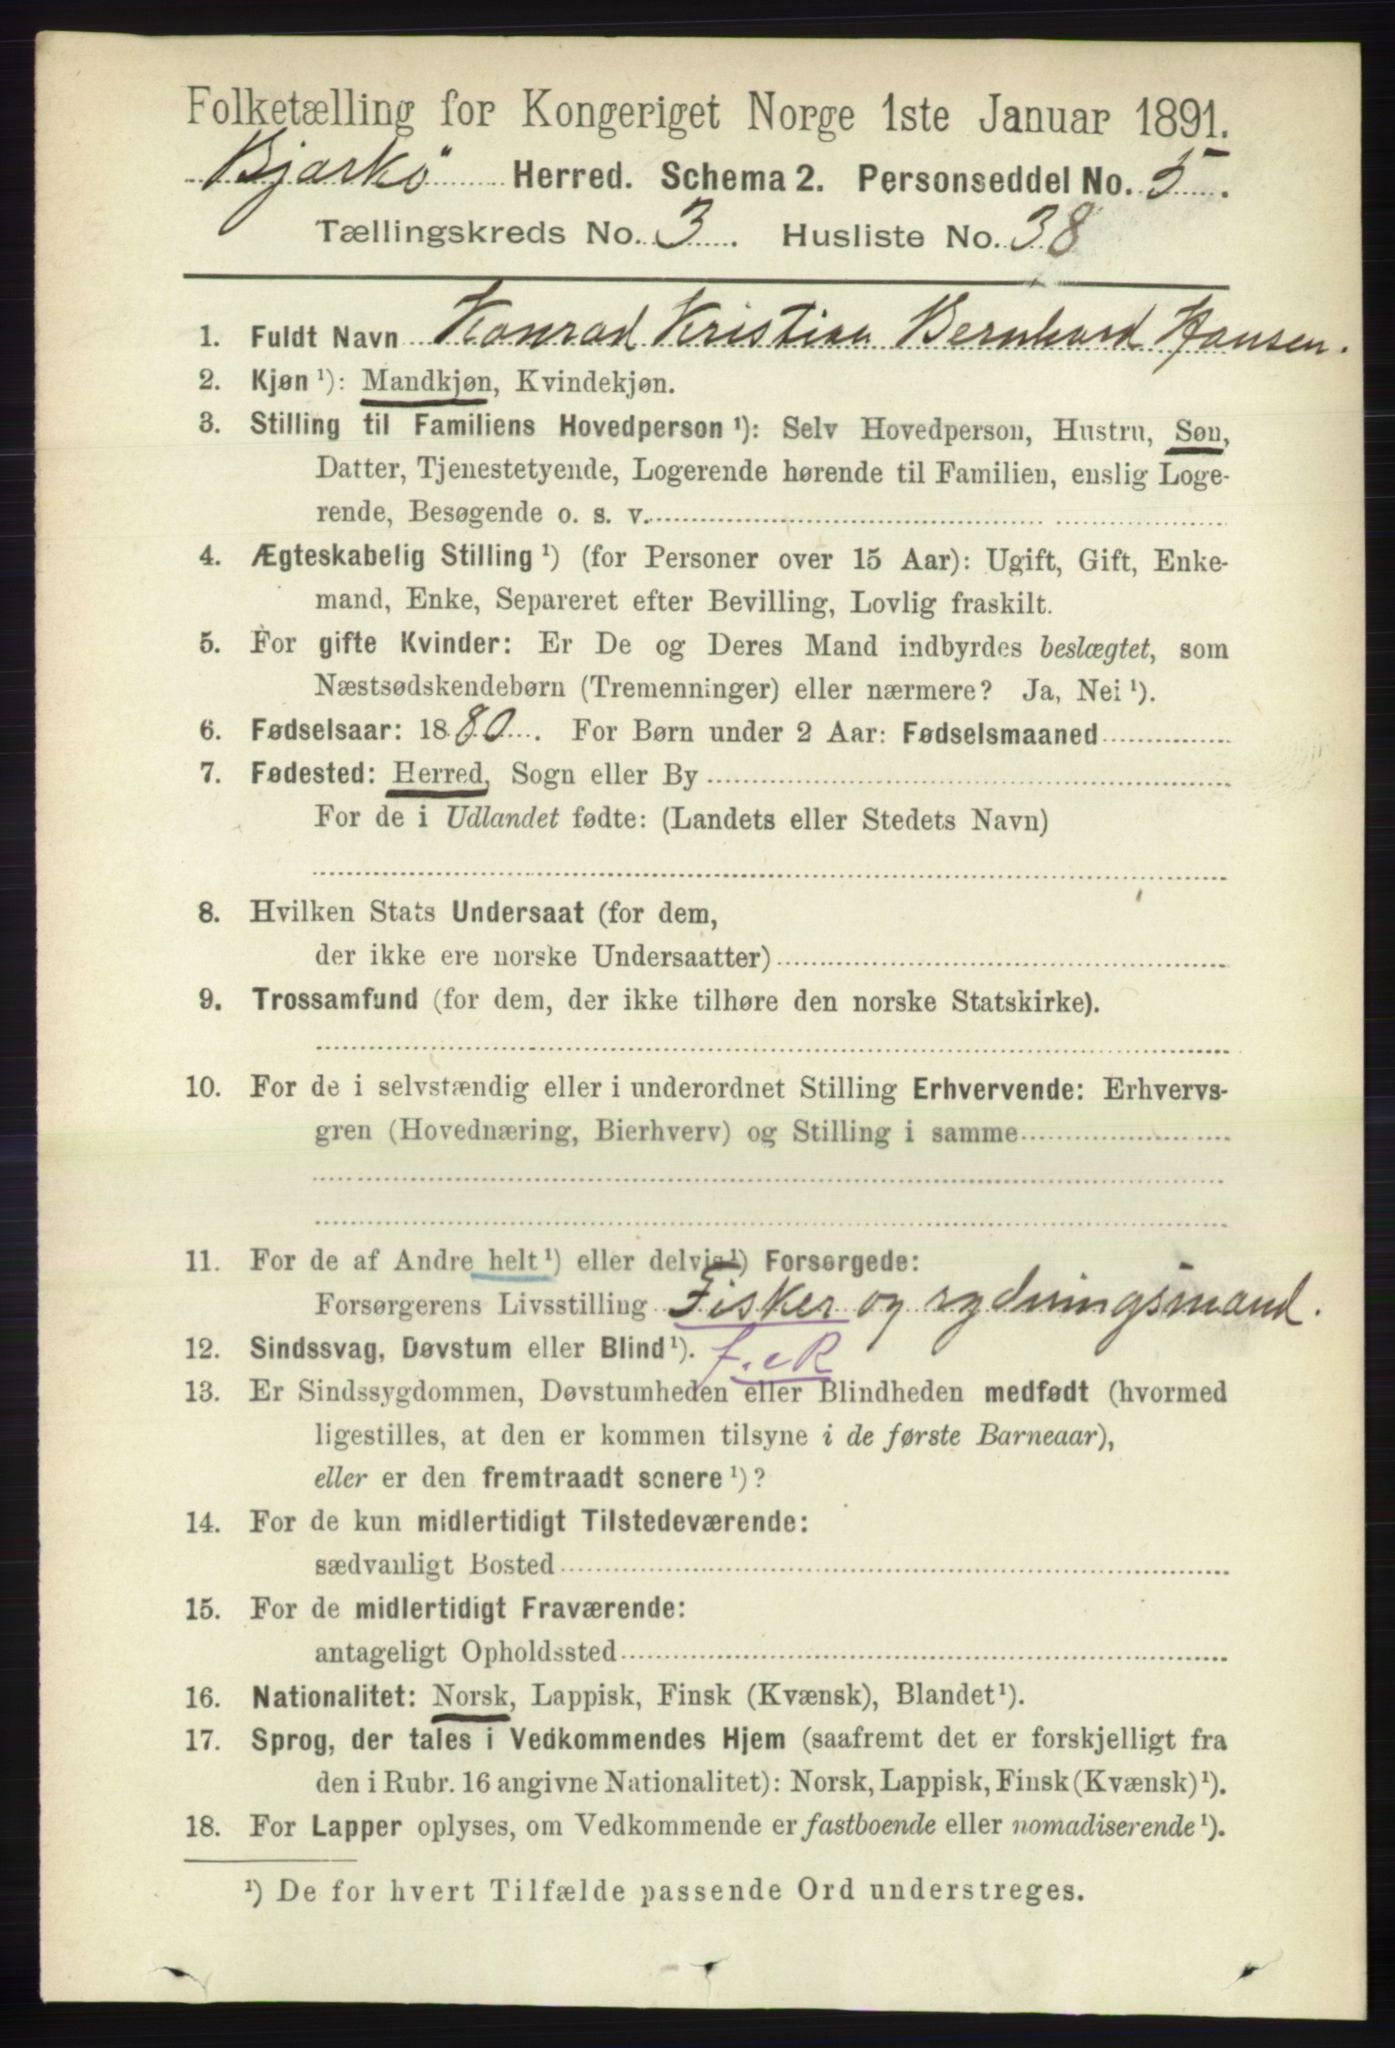 Folketælling for Kongeriget Norge 1ste Januar 1891.
Bjarkö Herred. Schema 2. Personseddel No. 5.
Tællingskreds No. 3. Husliste No. 38
1. Fuldt Navn Konrad Kristian Bernhard Hansen.
2. Kjøn ¹): Mandkjøn, Kvindekjøn.
3. Stilling til Familiens Hovedperson ¹): Selv Hovedperson, Hustru, Søn,
Datter, Tjenestetyende, Logerende hørende til Familien, enslig Loge-
rende, Besøgende o. s. v.
4. Ægteskabelig Stilling ¹) (for Personer over 15 Aar): Ugift, Gift, Enke-
mand, Enke, Separeret efter Bevilling, Lovlig fraskilt.
5. For gifte Kvinder: Er De og Deres Mand indbyrdes beslægtet, som
Næstsødskendebørn (Tremenninger) eller nærmere? Ja, Nei ¹).
6. Fødselsaar: 1880. For Børn under 2 Aar: Fødselsmaaned
7. Fødested: Herred, Sogn eller By
For de i Udlandet fødte: (Landets eller Stedets Navn)
8. Hvilken Stats Undersaat (for dem,
der ikke ere norske Undersaatter)
9. Trossamfund (for dem, der ikke tilhøre den norske Statskirke).
10. For de i selvstændig eller i underordnet Stilling Erhvervende: Erhvervs-
gren (Hovednæring, Bierhverv) og Stilling i samme
11. For de af Andre helt ¹) eller delvis ¹) Forsørgede:
Forsørgerens Livsstilling Fisker og rydningsmand.
12. Sindssvag, Døvstum eller Blind ¹). f. e R
13. Er Sindssygdommen, Døvstumheden eller Blindheden medfødt (hvormed
ligestilles, at den er kommen tilsyne i de første Barneaar),
eller er den fremtraadt senere ¹)?
14. For de kun midlertidigt Tilstedeværende:
sædvanligt Bosted
15. For de midlertidigt Fraværende:
antageligt Opholdssted
16. Nationalitet: Norsk, Lappisk, Finsk (Kvænsk), Blandet ¹).
17. Sprog, der tales i Vedkommendes Hjem (saafremt det er forskjelligt fra
den i Rubr. 16 angivne Nationalitet): Norsk, Lappisk, Finsk (Kvænsk) ¹).
18. For Lapper oplyses, om Vedkommende er fastboende eller nomadiserende ¹).
¹) De for hvert Tilfælde passende Ord understreges.